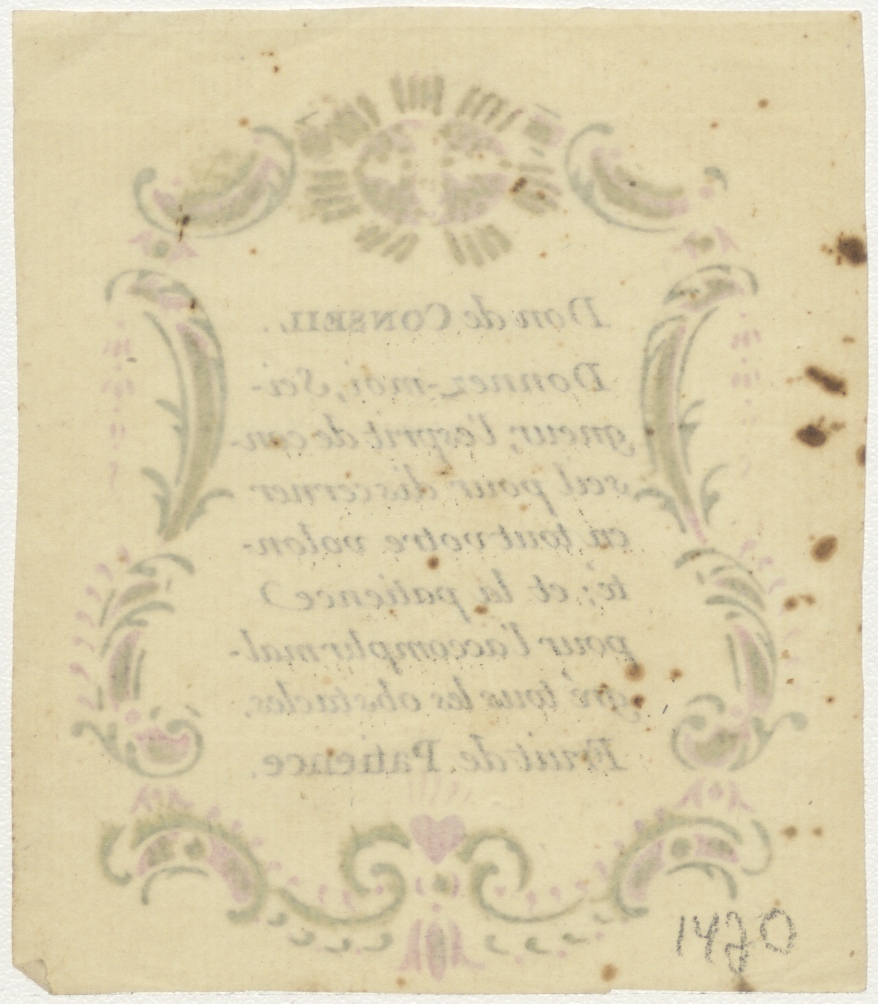 Don de CONSEIL.
Donnez-moi, Sei-
gneur, l'esprit de con-
seil pour discerner
en tout votre volon-
té; et la patience
pour l'accomplir mal-
gré tous les obstacles.
Fruit de Patience.
1420